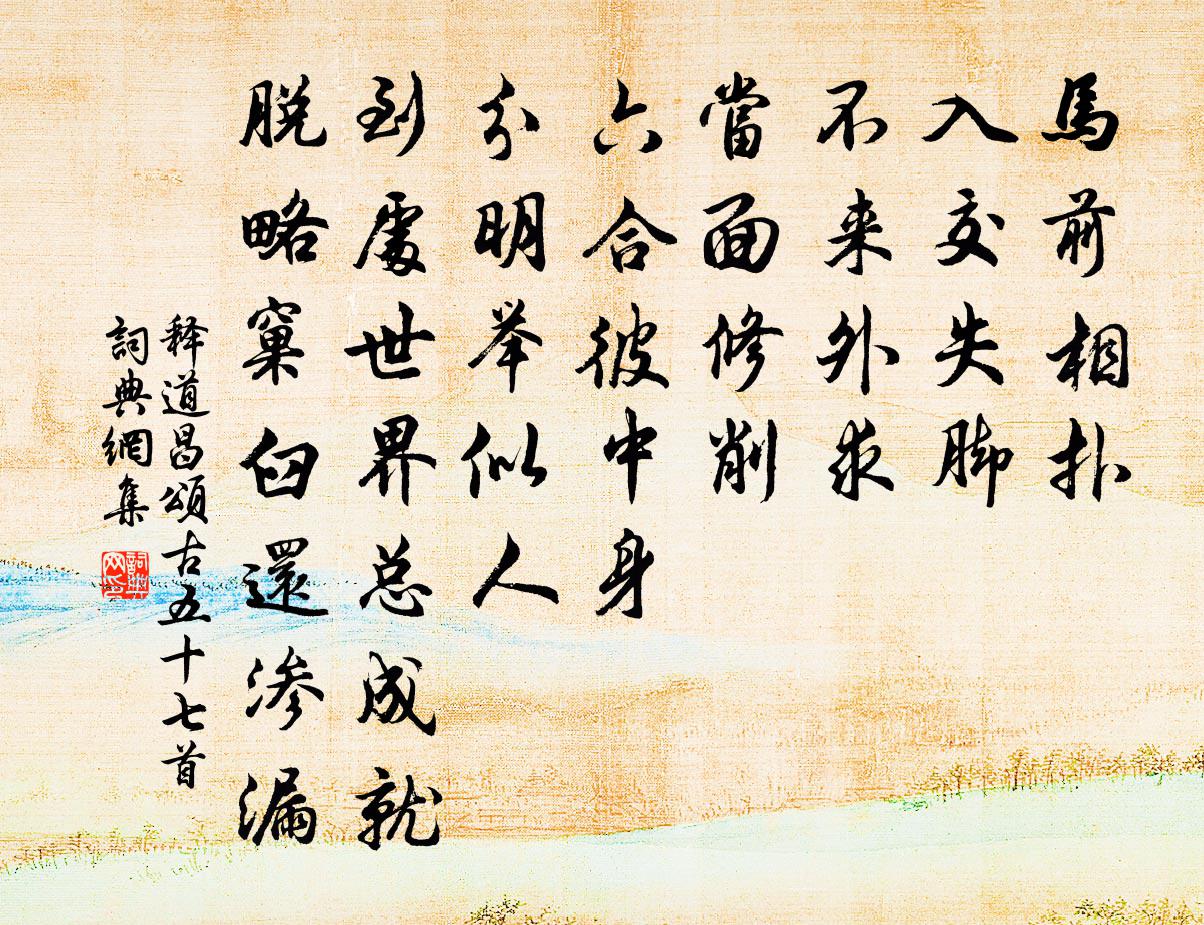 馬前相扑
入交失脚
不来外求
當面修削
六合彼中身
分明举似人
到處世界总成就
脱略窠臼還渗漏
释道昌頌古五十七首
詞典網集